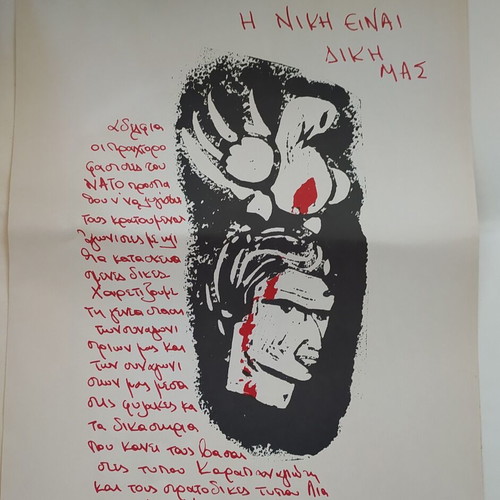 Η ΝΙΚΗ ΕΙΝΑΙ
ΔΙΚΗ
ΜΑΣ
αδερφια
οι πραχτορο
φασιστες του
ΝΑΤΟ προσπα
θουν να λυγισουν
τους κρατουμενους
αγωνιστες με
θα κατασκευα
σμενες δικες.
Χαιρετιζουμε
τη γενια σταση
των συναγωνι
στριων μας και
των συναγωνι
στων μας μεσα
στις φυλακες και
τα δικαστηρια
που κανει τους βασανι
στες τυπου Καραπαναγιωτη
και τους στρατοδικες τυπου Λια